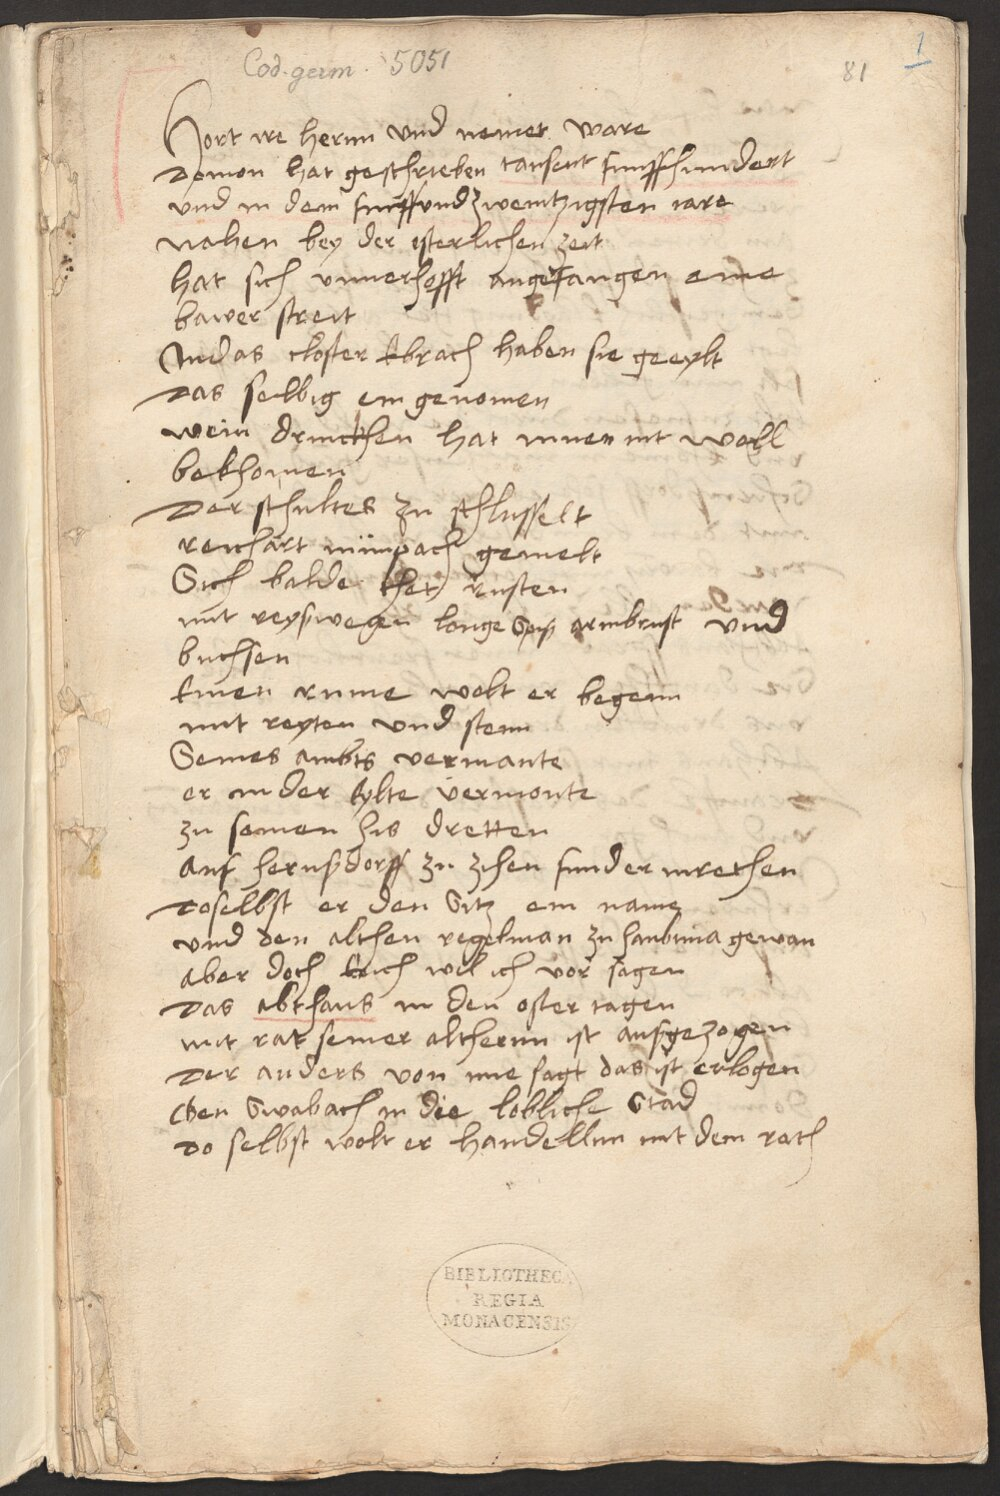 Cod. germ. 5051
1
81
Hort ire hernn vnd nemet ware
Domon hat geschrieben tausent funffhundert
vnd in dem funffvndzwentzigsten iare
nahen bey der osterlichen zeit
hat sich vnuerhofft angefangen eine
bawer streit
In das closter Ebrach haben sie geeylt
Das selbig ein genomen
wein drinckhen hat innen nit woll
bekhomen
Der schultes zu schlusselt
reichart mimpach gemelt
Sich balde thet rusten
mit reyßwegen lange Spiß armbrust vnd
buchsen
Einen rume wolt er begenn
mit reyten vnd stenn
Seines ambts vermante
er in der Eylte vermonte
zu seinen his dretten
auf hernßdorff zu zihen sunder inrethen
Doselbst er den Sitz ein name
vnd den althen regelman zu haubtma gewan
aber doch Euch wil ich vor sagen
Das abthaus in den oster tagen
mit rat seiner althernn ist außgezogen
Der anders von mie sagt das ist erlogen
Gen Swabach in die lobliche Stad
Do selbst wolt er handellnn mit dem rath
BIBLIOTHECA
REGIA
MONACENSIS